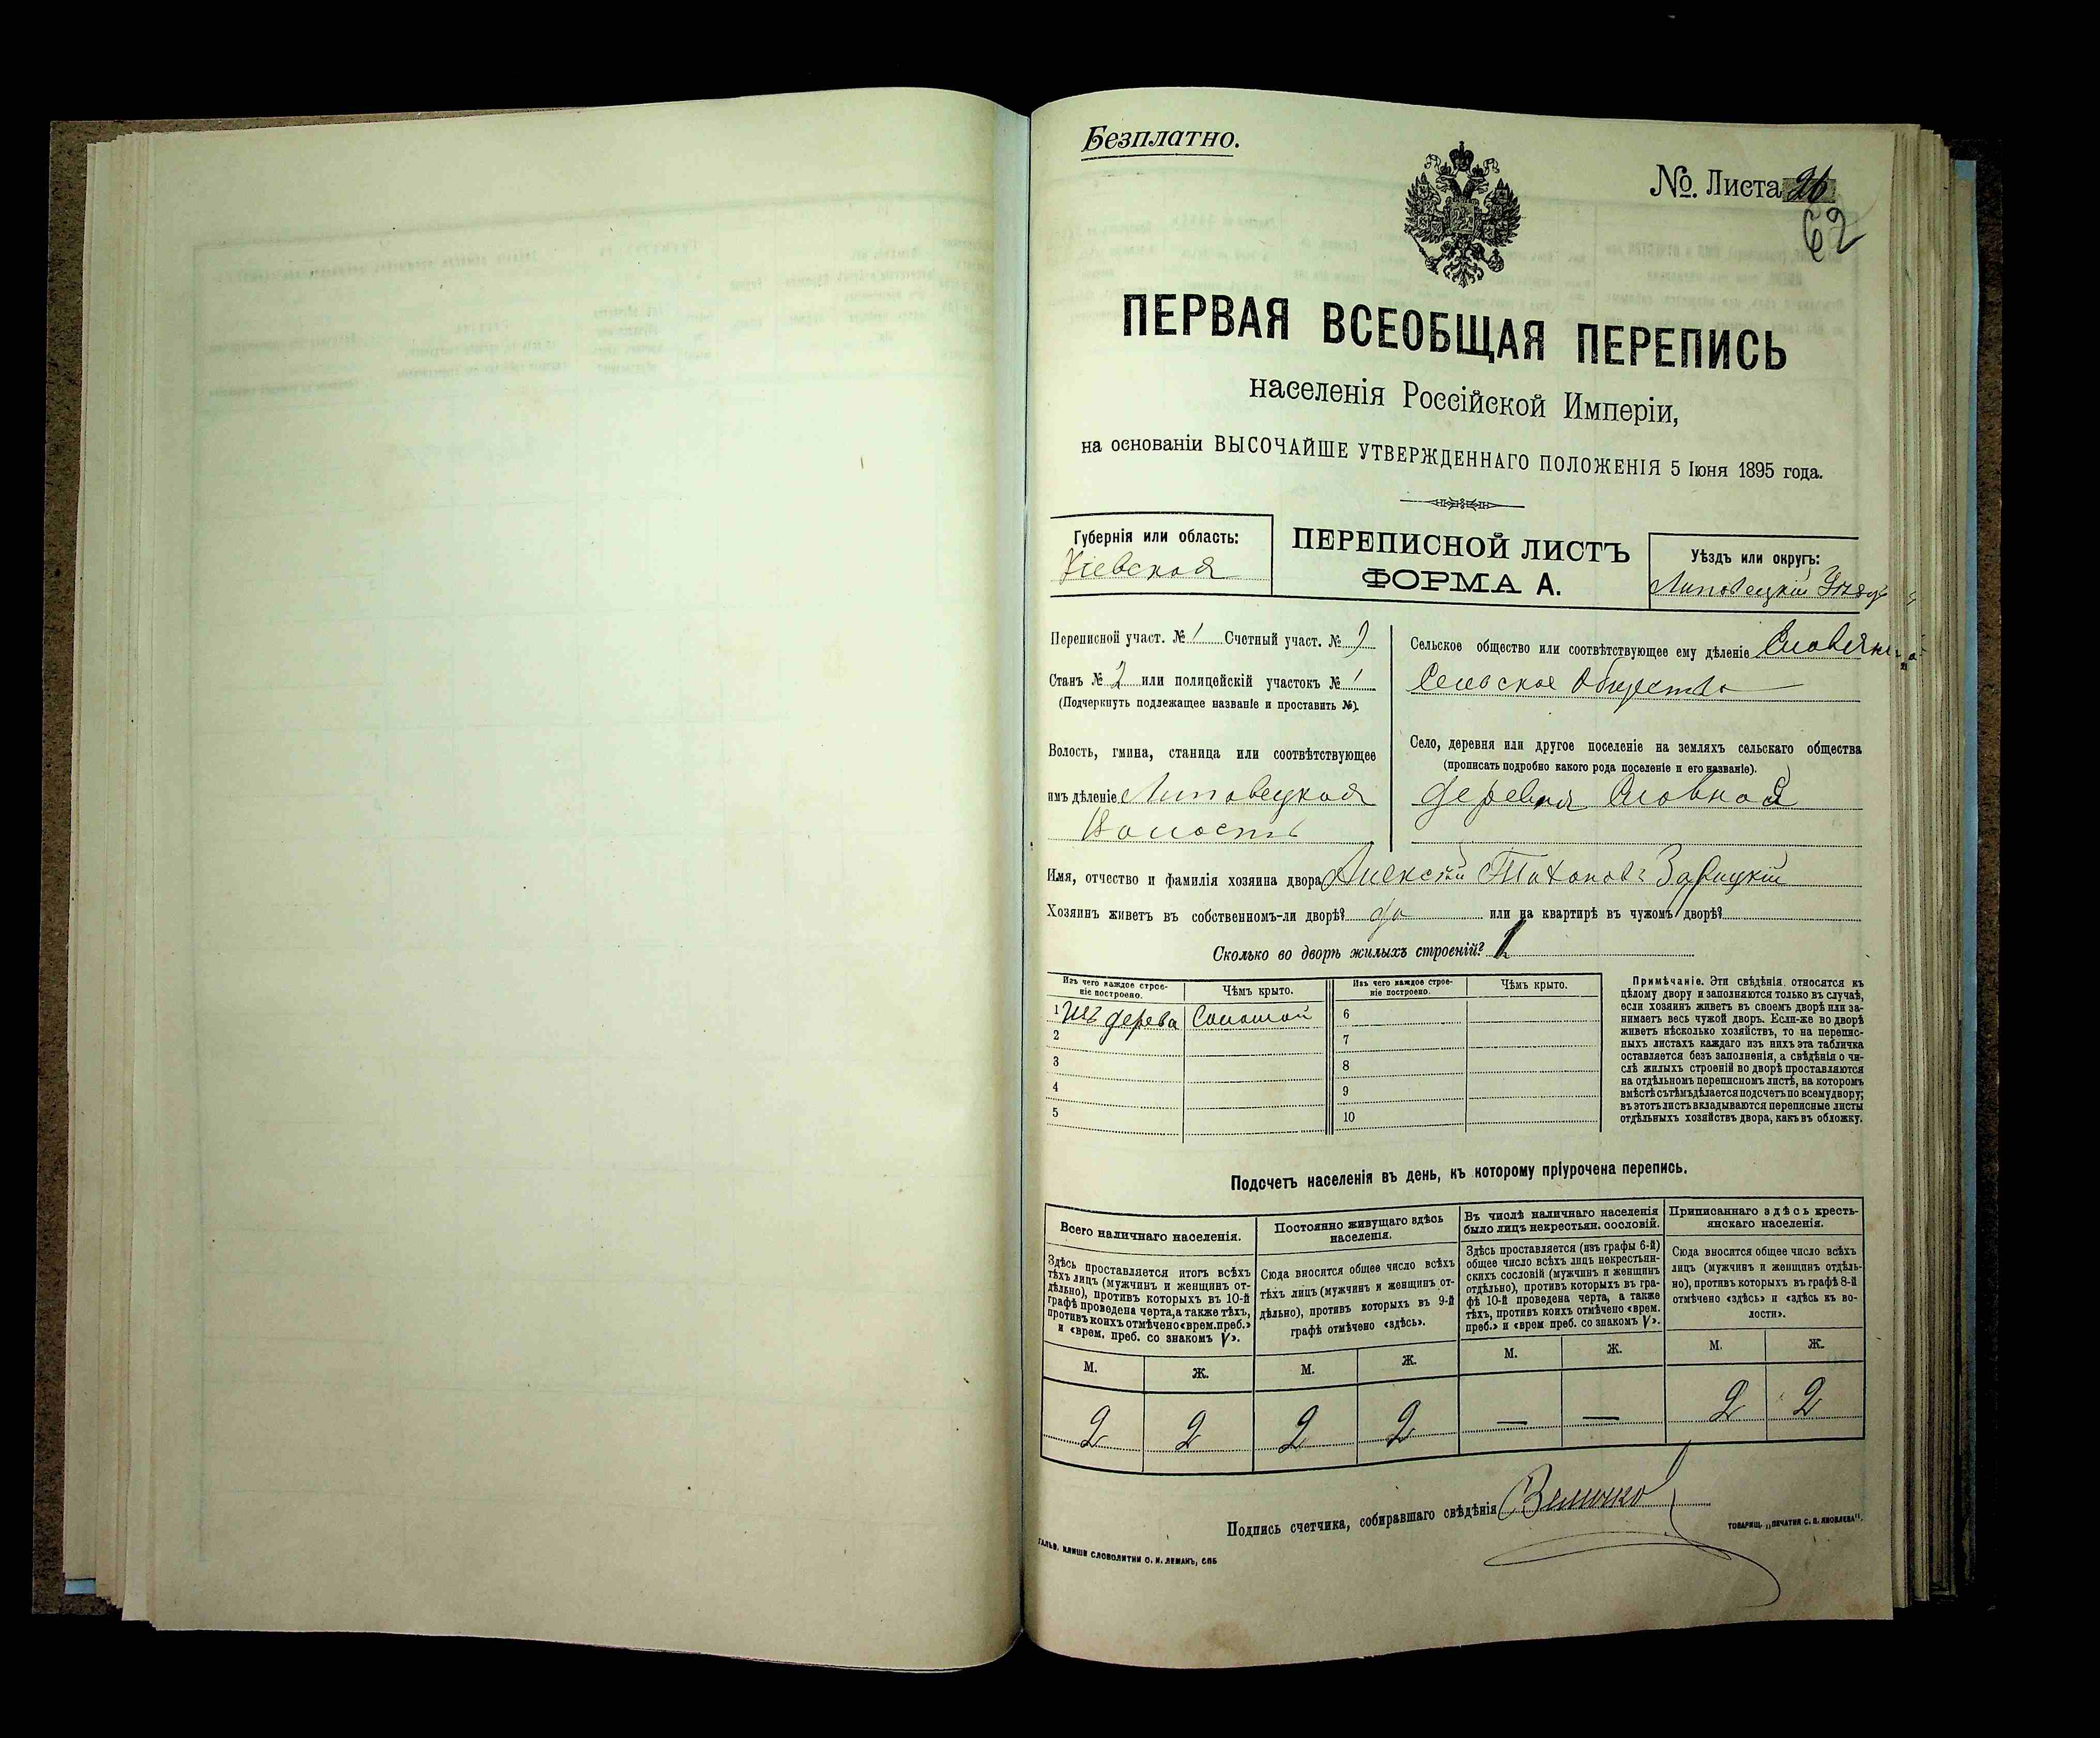 Безплатно.
№. Листа 26
62
ПЕРВАЯ ВСЕОБЩАЯ ПЕРЕПИСЬ
населенія Россійской Имперіи,
на основаніи ВЫСОЧАЙШЕ УТВЕРЖДЕННАГО ПОЛОЖЕНІЯ 5 Іюня 1895 года.
Губернія или область:
Кіевская
ПЕРЕПИСНОЙ ЛИСТЪ
ФОРМА А.
Уѣздъ или округъ:
Липовецкій Уѣздъ
Переписной участ. № 1 Счетный участ. № 9
Станъ № 2 или полицейскій участокъ № 1
(Подчеркнуть подлежащее названіе и проставить №).
Волость, гмина, станица или соотвѣтствующее
имъ дѣленіе Липовецкая
Волость
Сельское общество или соотвѣтствующее ему дѣленіе
Сельское Общество
Село, деревня или другое поселеніе на земляхъ сельскаго общества
(прописать подробно какого рода поселеніе и его названіе).
деревня Словная
Имя, отчество и фамилія хозяина двора Алексѣй Тихоновъ Зарицкій
Хозяинъ живетъ въ собственномъ-ли дворѣ? да или на квартирѣ въ чужомъ дворѣ?
Сколько во дворѣ жилыхъ строеній? 1
Изъ чего каждое строе-
ніе построено.
Чѣмъ крыто.
Изъ чего каждое строе-
ніе построено.
Чѣмъ крыто.
1 Изъ дерева Соломой 6
2 7
3 8
4 9
5 10
Примѣчаніе. Эти свѣдѣнія относятся къ
цѣлому двору и заполняются только въ случаѣ,
если хозяинъ живетъ въ своемъ дворѣ или за-
нимаетъ весь чужой дворъ. Если-же во дворѣ
живетъ нѣсколько хозяйствъ, то на перепис-
ныхъ листахъ каждаго изъ нихъ эта табличка
оставляется безъ заполненія, а свѣдѣнія о чи-
слѣ жилыхъ строеній во дворѣ проставляются
на отдѣльномъ переписномъ листѣ, на которомъ
вмѣстѣ съ тѣмъ дѣлается подсчетъ по всему двору;
въ этотъ листъ вкладываются переписные листы
отдѣльныхъ хозяйствъ двора, какъ въ обложку.
Подсчетъ населенія въ день, къ которому пріурочена перепись.
Всего наличнаго населенія.
Здѣсь проставляется итогъ всѣхъ
тѣхъ лицъ (мужчинъ и женщинъ от-
дѣльно), противъ которыхъ въ 10-й
графѣ проведена черта, а также тѣхъ,
противъ коихъ отмѣчено «врем. преб.»
и «врем. преб. со знакомъ V».
Постоянно живущаго здѣсь
населенія.
Сюда вносится общее число всѣхъ
тѣхъ лицъ (мужчинъ и женщинъ от-
дѣльно), противъ которыхъ въ 9-й
графѣ отмѣчено «здѣсь».
Въ числѣ наличнаго населенія
было лицъ некрестьян. сословій.
Здѣсь проставляется (изъ графы 6-й)
общее число всѣхъ лицъ некрестьян-
скихъ сословій (мужчинъ и женщинъ
отдѣльно), противъ которыхъ въ гра-
фѣ 10-й проведена черта, а также
тѣхъ, противъ коихъ отмѣчено «врем.
преб.» и «врем преб. со знакомъ V».
Приписаннаго здѣсь кресть-
янскаго населенія.
Сюда вносится общее число всѣхъ
лицъ (мужчинъ и женщинъ отдѣль-
но), противъ которыхъ въ графѣ 8-й
отмѣчено «здѣсь» и «здѣсь къ во-
лости».
М. Ж. М. Ж. М. Ж. М. Ж.
2 2 2 2 — — 2 2
Подпись счетчика, собиравшаго свѣдѣнія Величко
ГАЛЬВ. КЛИШЕ СЛОВОЛИТНИ О. И. ЛЕМАНЪ, СПБ
ТОВАРИЩ. „ПЕЧАТНЯ С. П. ЯКОВЛЕВА".